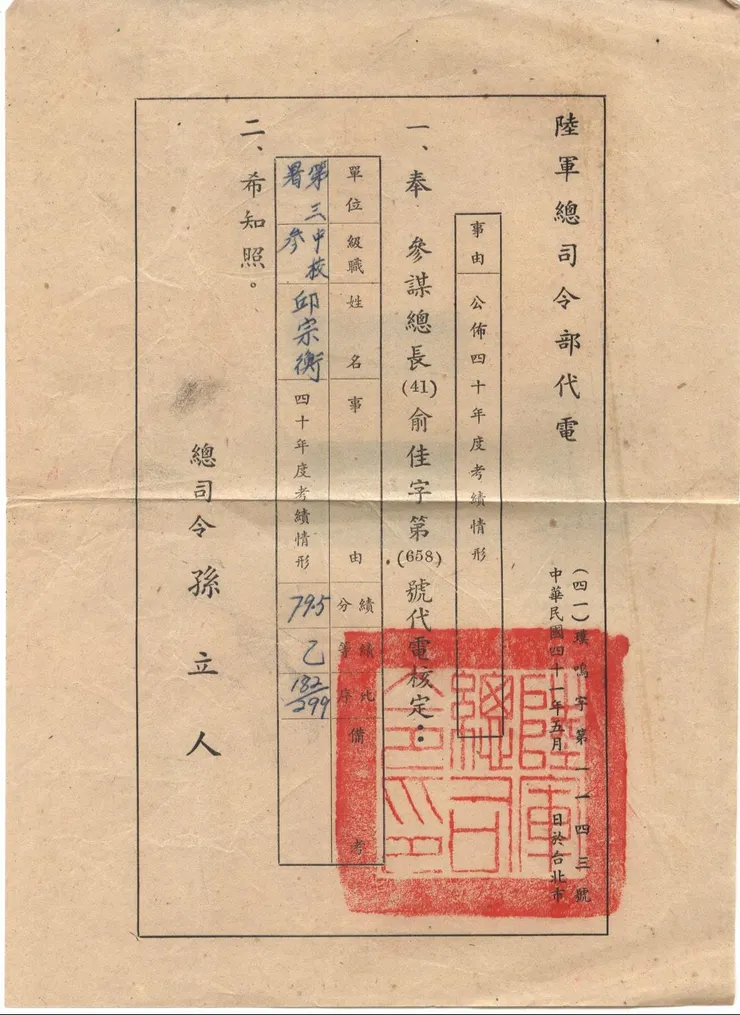 陸軍總司令部代電
(四一)璞鳴字第一一四三號
中華民國四十一年五月 日於台北市
事由 公佈四十年度考績情形
一、奉 參謀總長(41)俞佳字第(658)號代電核定：
單位 級職 姓名 事由 績分 績等 比序 備考
第三署 中校參 邱宗衡 四十年度考績情形 79.5 乙 182/299
二、希知照。
總司令 孫立人
陸軍總司令印